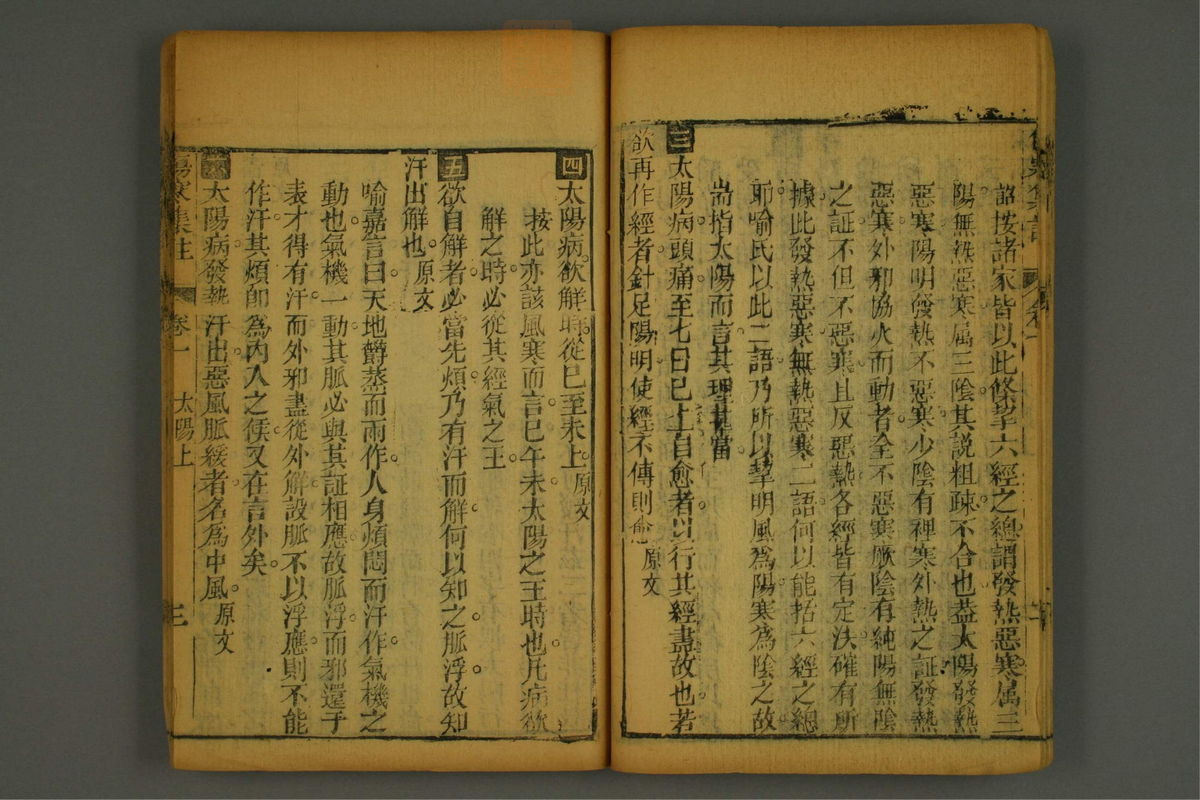 詔按諸家皆以此條挈六經之總謂發熱惡寒属三
陽無熱惡寒属三陰其說粗疎不合也葢太陽發熱
惡寒陽明發熱不惡寒少陰有裡寒外熱之証發熱
惡寒外邪協火而動者全不惡寒厥陰有純陽無陰
之証不但不惡寒且反惡熱各經皆有定决確有所
據此發熱惡寒無熱惡寒二語何以能括六經之總
耶喻氏以此二語乃所以挈明風爲陽寒爲陰之故
耑指太陽而言其理甚當
三太陽病頭痛至七日已上自愈者以行其經盡故也若
欲再作經者針足陽明使經不傳則愈原文
四太陽病欲解時從巳至未上原文
按此亦該風寒而言巳午未太陽之王時也凡病欲
解之時必從其經氣之王
五欲自解者必當先煩乃有汗而解何以知之脈浮故知
汗出解也原文
喻嘉言曰天地欝蒸而雨作人身煩悶而汗作氣機之
動也氣機一動其脈必與其証相應故脈浮而邪還于
表才得有汗而外邪盡從外解設脈不以浮應則不能
作汗其煩卽爲內入之候又在言外矣
太陽病發熱汗出惡風脈緩者名爲中風原文
傷寒集註 卷一 太陽上 三